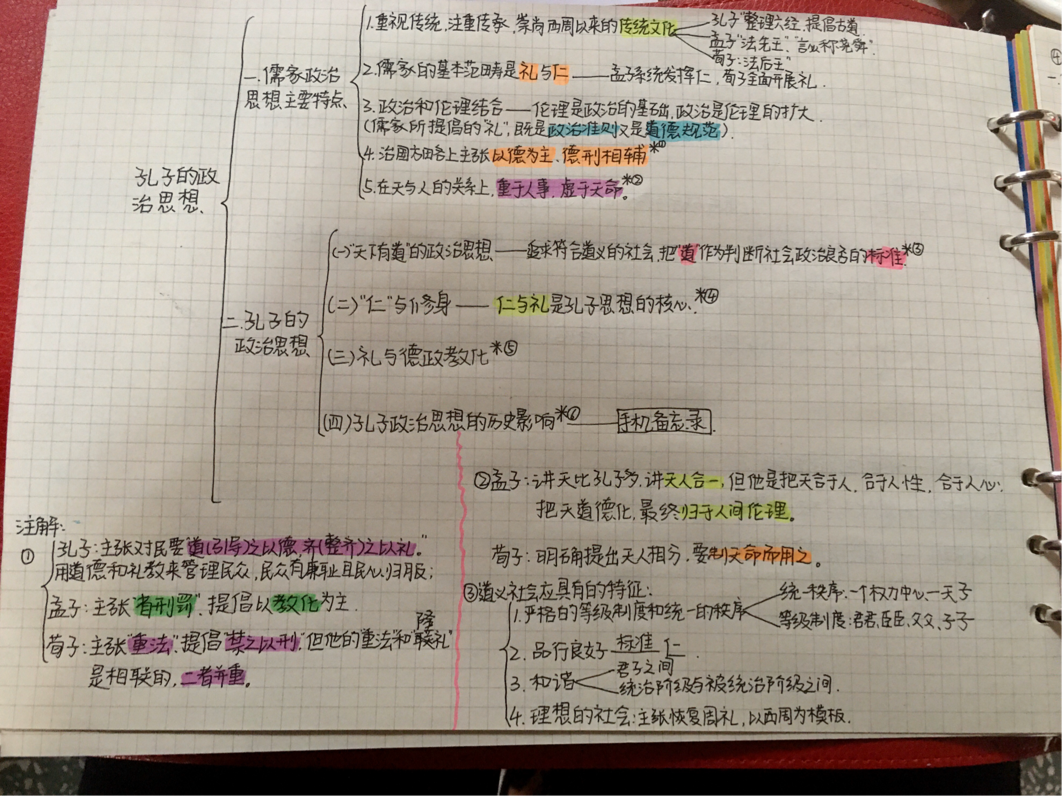 孔子的政
治思想、
一.儒家政治
思想主要特点、
1.重视传统,注重传承,崇尚西周以来的传统文化
孔子"整理六经,提倡古道
孟子"法先王","言必称尧舜"
荀子:法后王"
2.儒家的基本范畴是礼与仁——孟子系统发挥仁,荀子全面开展礼.
3.政治和伦理结合——伦理是政治的基础,政治是伦理的扩大.
(儒家所提倡的"礼",既是政治准则又是道德规范).
4.治国方略上主张以德为主、德刑相辅*①
5.在天与人的关系上,重于人事,虚于天命。*②
二.孔子的
政治思想
(一)"天下有道"的政治思想——追求符合道义的社会,把"道"作为判断社会政治良否的标准.*③
(二)"仁"与修身——仁与礼是孔子思想的核心.*④
(三)礼与德政教化*⑤
(四)孔子政治思想的历史影响*⑥——手机备忘录.
注解:
①
孔子:主张对民要道(引导)之以德,齐(整齐)之以礼。"
用道德和礼教来管理民众,民众有廉耻且民心归服;
孟子:主张"省刑罚",提倡以教化为主.
隆
荀子:主张"重法",提倡"禁之以刑",但他的"重法"和"礼"
是相联的,二者并重。
②孟子:讲天比孔子多,讲天人合一,但他是把天合于人,合于人性,合于人心.
把天道德化,最终归于人间伦理。
荀子:明确提出天人相分,要制天命而用之.
③道义社会应具有的特征:
1.严格的等级制度和统一的秩序
统一秩序:一个权力中心—天子
等级制度:君君、臣臣、父父、子子
2.品行良好 标准 仁.
3.和谐
君子之间
统治阶级与被统治阶级之间.
4.理想的社会:主张恢复周礼,以西周为模板.